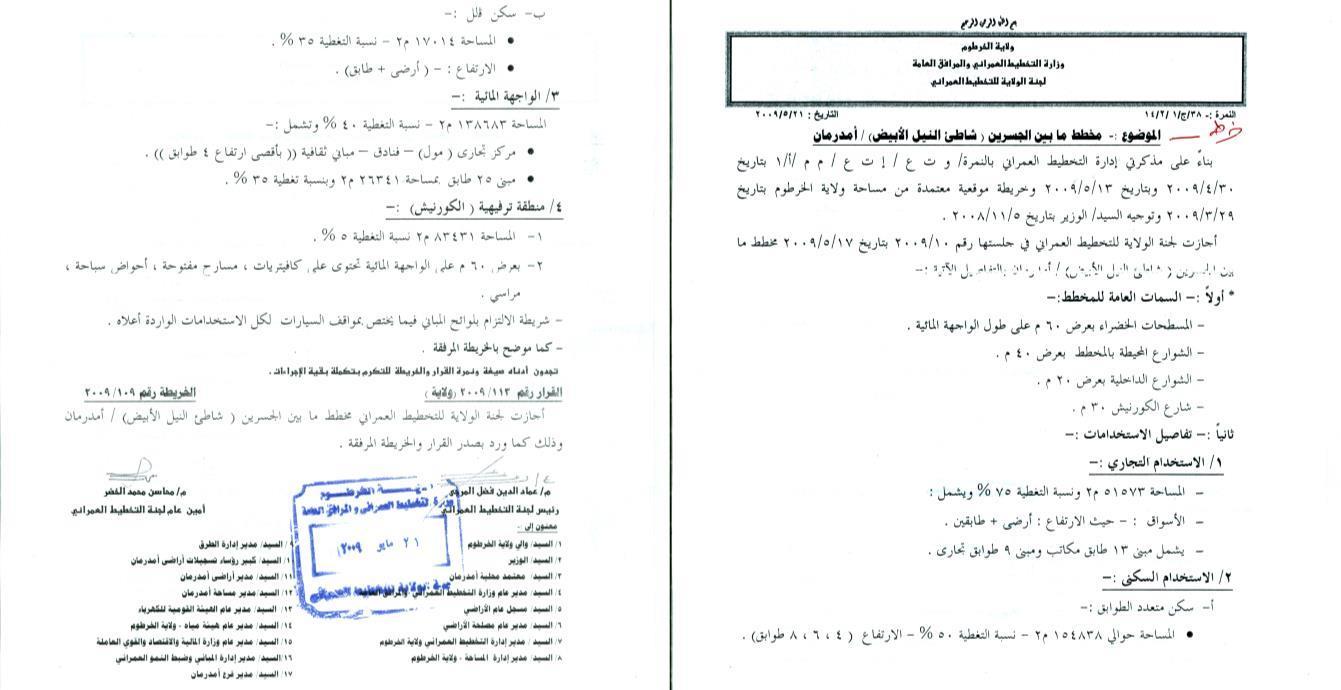 بسم الله الرحمن الرحيم
ولاية الخرطوم
وزارة التخطيط العمراني والمرافق العامة
لجنة الولاية للتخطيط العمراني
النمرة :- ٣٨/ج/١ /١٤/٢ التاريخ : ٢٠٠٩/٥/٢١
الموضوع :- مخطط ما بين الجسرين ( شاطئ النيل الأبيض) / أمدرمان
بناءً على مذكرتي إدارة التخطيط العمراني بالنمرة/ و ت ع / إ ت ع / م م /أ/١ بتاريخ
٢٠٠٩/٤/٣٠ وبتاريخ ٢٠٠٩/٥/١٣ وخريطة موقعية معتمدة من مساحة ولاية الخرطوم بتاريخ
٢٠٠٩/٣/٢٩ وتوجيه السيد/ الوزير بتاريخ ٢٠٠٨/١١/٥ .
أجازت لجنة الولاية للتخطيط العمراني في جلستها رقم ٢٠٠٩/١٠ بتاريخ ٢٠٠٩/٥/١٧ مخطط ما
بين الجسرين ( شاطئ النيل الأبيض) / أمدرمان بالتفاصيل الآتية :-
* أولاً :- السمات العامة للمخطط:-
- المسطحات الخضراء بعرض ٦٠ م على طول الواجهة المائية .
- الشوارع المحيطة بالمخطط بعرض ٤٠ م .
- الشوارع الداخلية بعرض ٢٠ م .
- شارع الكورنيش ٣٠ م .
ثانياً :- تفاصيل الاستخدامات :-
١/ الاستخدام التجاري :-
- المساحة ٥١٥٧٣ م٢ ونسبة التغطية ٧٥ % ويشمل :
- الأسواق : - حيث الارتفاع : أرضى + طابقين .
- يشمل مبنى ١٣ طابق مكاتب ومبنى ٩ طوابق تجارى .
٢/ الاستخدام السكنى :-
أ- سكن متعدد الطوابق :-
• المساحة حوالي ١٥٤٨٣٨ م٢ - نسبة التغطية ٥٠ % - الارتفاع ( ٤ ، ٦ ، ٨ طوابق) .
ب- سكن فلل :-
• المساحة ١٧٠١٤ م٢ - نسبة التغطية ٣٥ % .
• الارتفاع : - ( أرضى + طابق) .
٣/ الواجهة المائية :-
المساحة ١٣٨٦٨٣ م٢ - نسبة التغطية ٤٠ % وتشمل :-
• مركز تجارى ( مول) – فنادق - مباني ثقافية (( بأقصى ارتفاع ٤ طوابق )) .
• مبنى ٢٥ طابق بمساحة ٢٦٣٤١ م٢ وبنسبة تغطية ٣٥ % .
٤/ منطقة ترفيهية ( الكورنيش) :-
١- المساحة ٨٣٤٣١ م٢ نسبة التغطية ٥ % .
٢- بعرض ٦٠ م على الواجهة المائية تحتوى على كافيتريات ، مسارح مفتوحة ، أحواض سباحة ،
مراسي .
- شريطة الالتزام بلوائح المباني فيما يختص بمواقف السيارات لكل الاستخدامات الواردة أعلاه .
- كما موضح بالخريطة المرفقة .
تجدون أدناه صيغة ونمرة القرار والخريطة للتكرم بتكملة بقية الإجراءات.
القرار رقم ٢٠٠٩/١١٣ (ولاية ) الخريطة رقم ٢٠٠٩/١٠٩
أجازت لجنة الولاية للتخطيط العمراني مخطط ما بين الجسرين ( شاطئ النيل الأبيض) / أمدرمان
وذلك كما ورد بصدر القرار والخريطة المرفقة .
م/ عماد الدين فضل م/ محاسن محمد الخضر
رئيس لجنة التخطيط العمراني أمين عام لجنة التخطيط العمراني
معنون إلى :-
١/ السيد/ والي ولاية الخرطوم
٢/ السيد/ الوزير
٣/ السيد/ معتمد محلية أمدرمان
٤/ السيد/ مدير عام وزارة التخطيط العمراني والمرافق العامة
٥/ السيد/ مسجل عام الأراضي
٦/ السيد/ مدير عام مصلحة الأراضي
٧/ السيد/ مدير إدارة التخطيط العمراني ولاية الخرطوم
٨/ السيد/ مدير إدارة المساحة - ولاية الخرطوم
٩/ السيد/ مدير إدارة الطرق
١٠/ السيد/ كبير رؤساء تسجيلات أراضى أمدرمان
١١/ السيد/ مدير أراضى أمدرمان
١٢/ السيد/ مدير مساحة أمدرمان
١٣/ السيد/ مدير عام الهيئة القومية للكهرباء
١٤/ السيد/ مدير عام هيئة مياه - ولاية الخرطوم
١٥/ السيد/ مدير عام وزارة المالية والاقتصاد والقوي العاملة
١٦/ السيد/ مدير إدارة المباني وضبط النمو العمراني
١٧/ السيد/ مدير فرع أمدرمان
وزارة التخطيط العمراني و المرافق العامة
٢١ مايو ٢٠٠٩